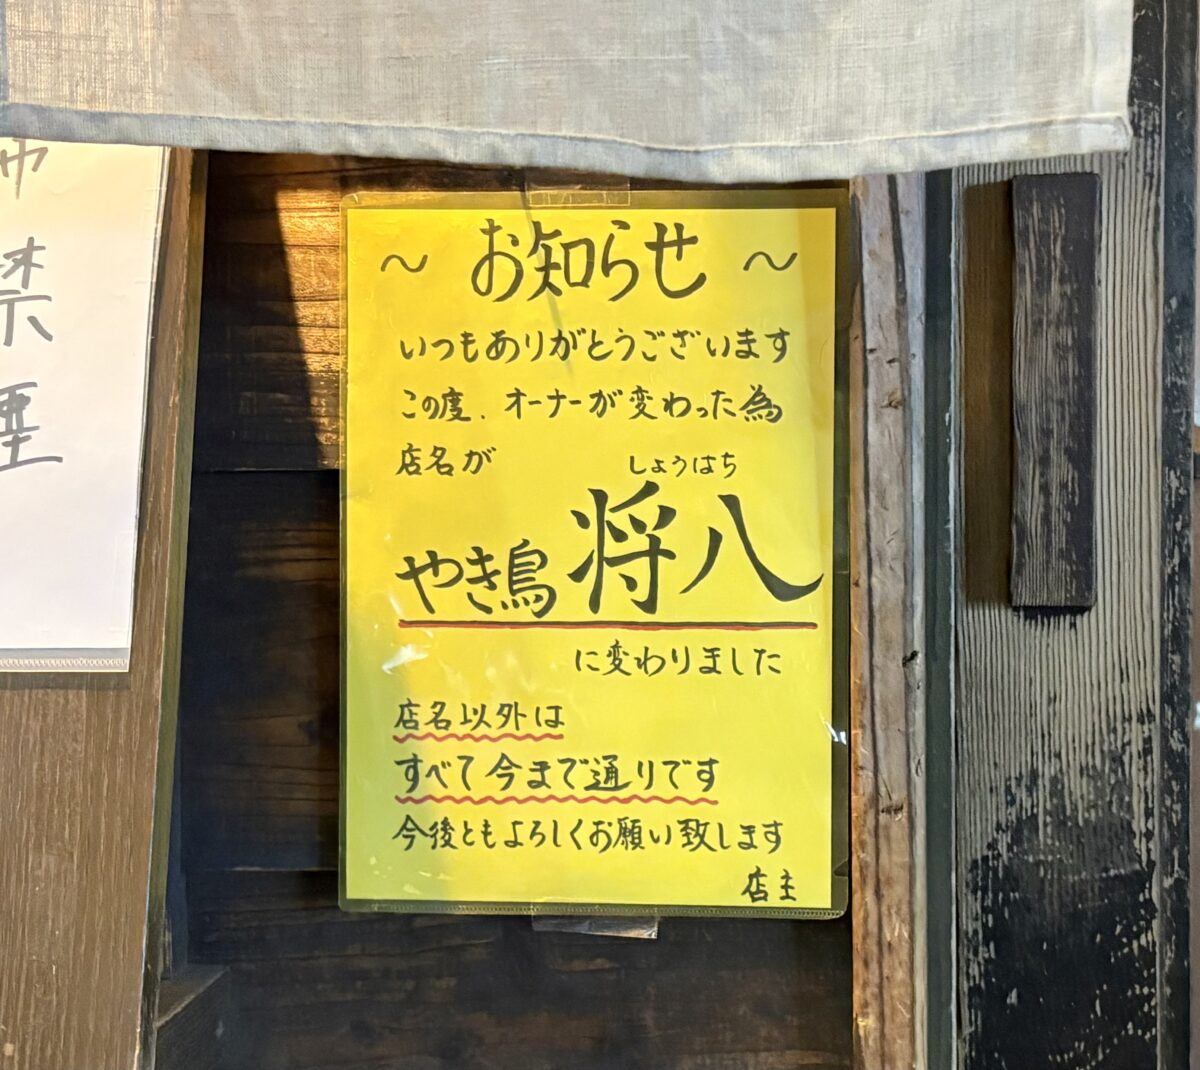 禁
煙
～ お知らせ ～
いつもありがとうございます
この度、オーナーが変わった為
店名が
しょうはち
やき鳥 将八
に変わりました
店名以外は
すべて今まで通りです
今後ともよろしくお願い致します
店主